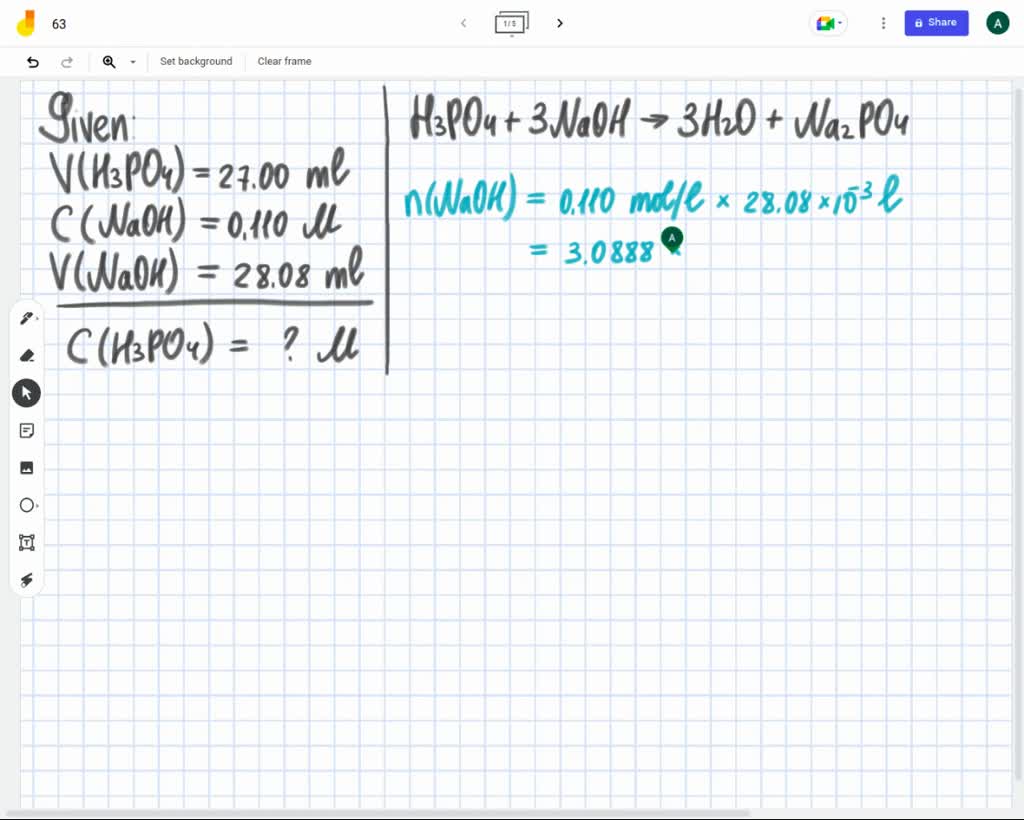 63
1/5
Share
A
Set background
Clear frame
Given:
V(H₃PO₄) = 27.00 ml
C(NaOH) = 0,110 M
V(NaOH) = 28.08 ml
C(H₃PO₄) = ? M
H₃PO₄ + 3NaOH → 3H₂O + Na₂PO₄
n(NaOH) = 0.110 mol/l × 28.08 × 10⁻³ l
= 3.0888 ×
A